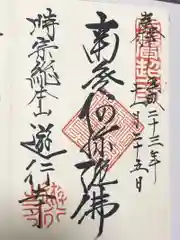 奉拝
平成二十三年
月二十五日
南無阿弥陀佛
時宗総本山 遊行寺